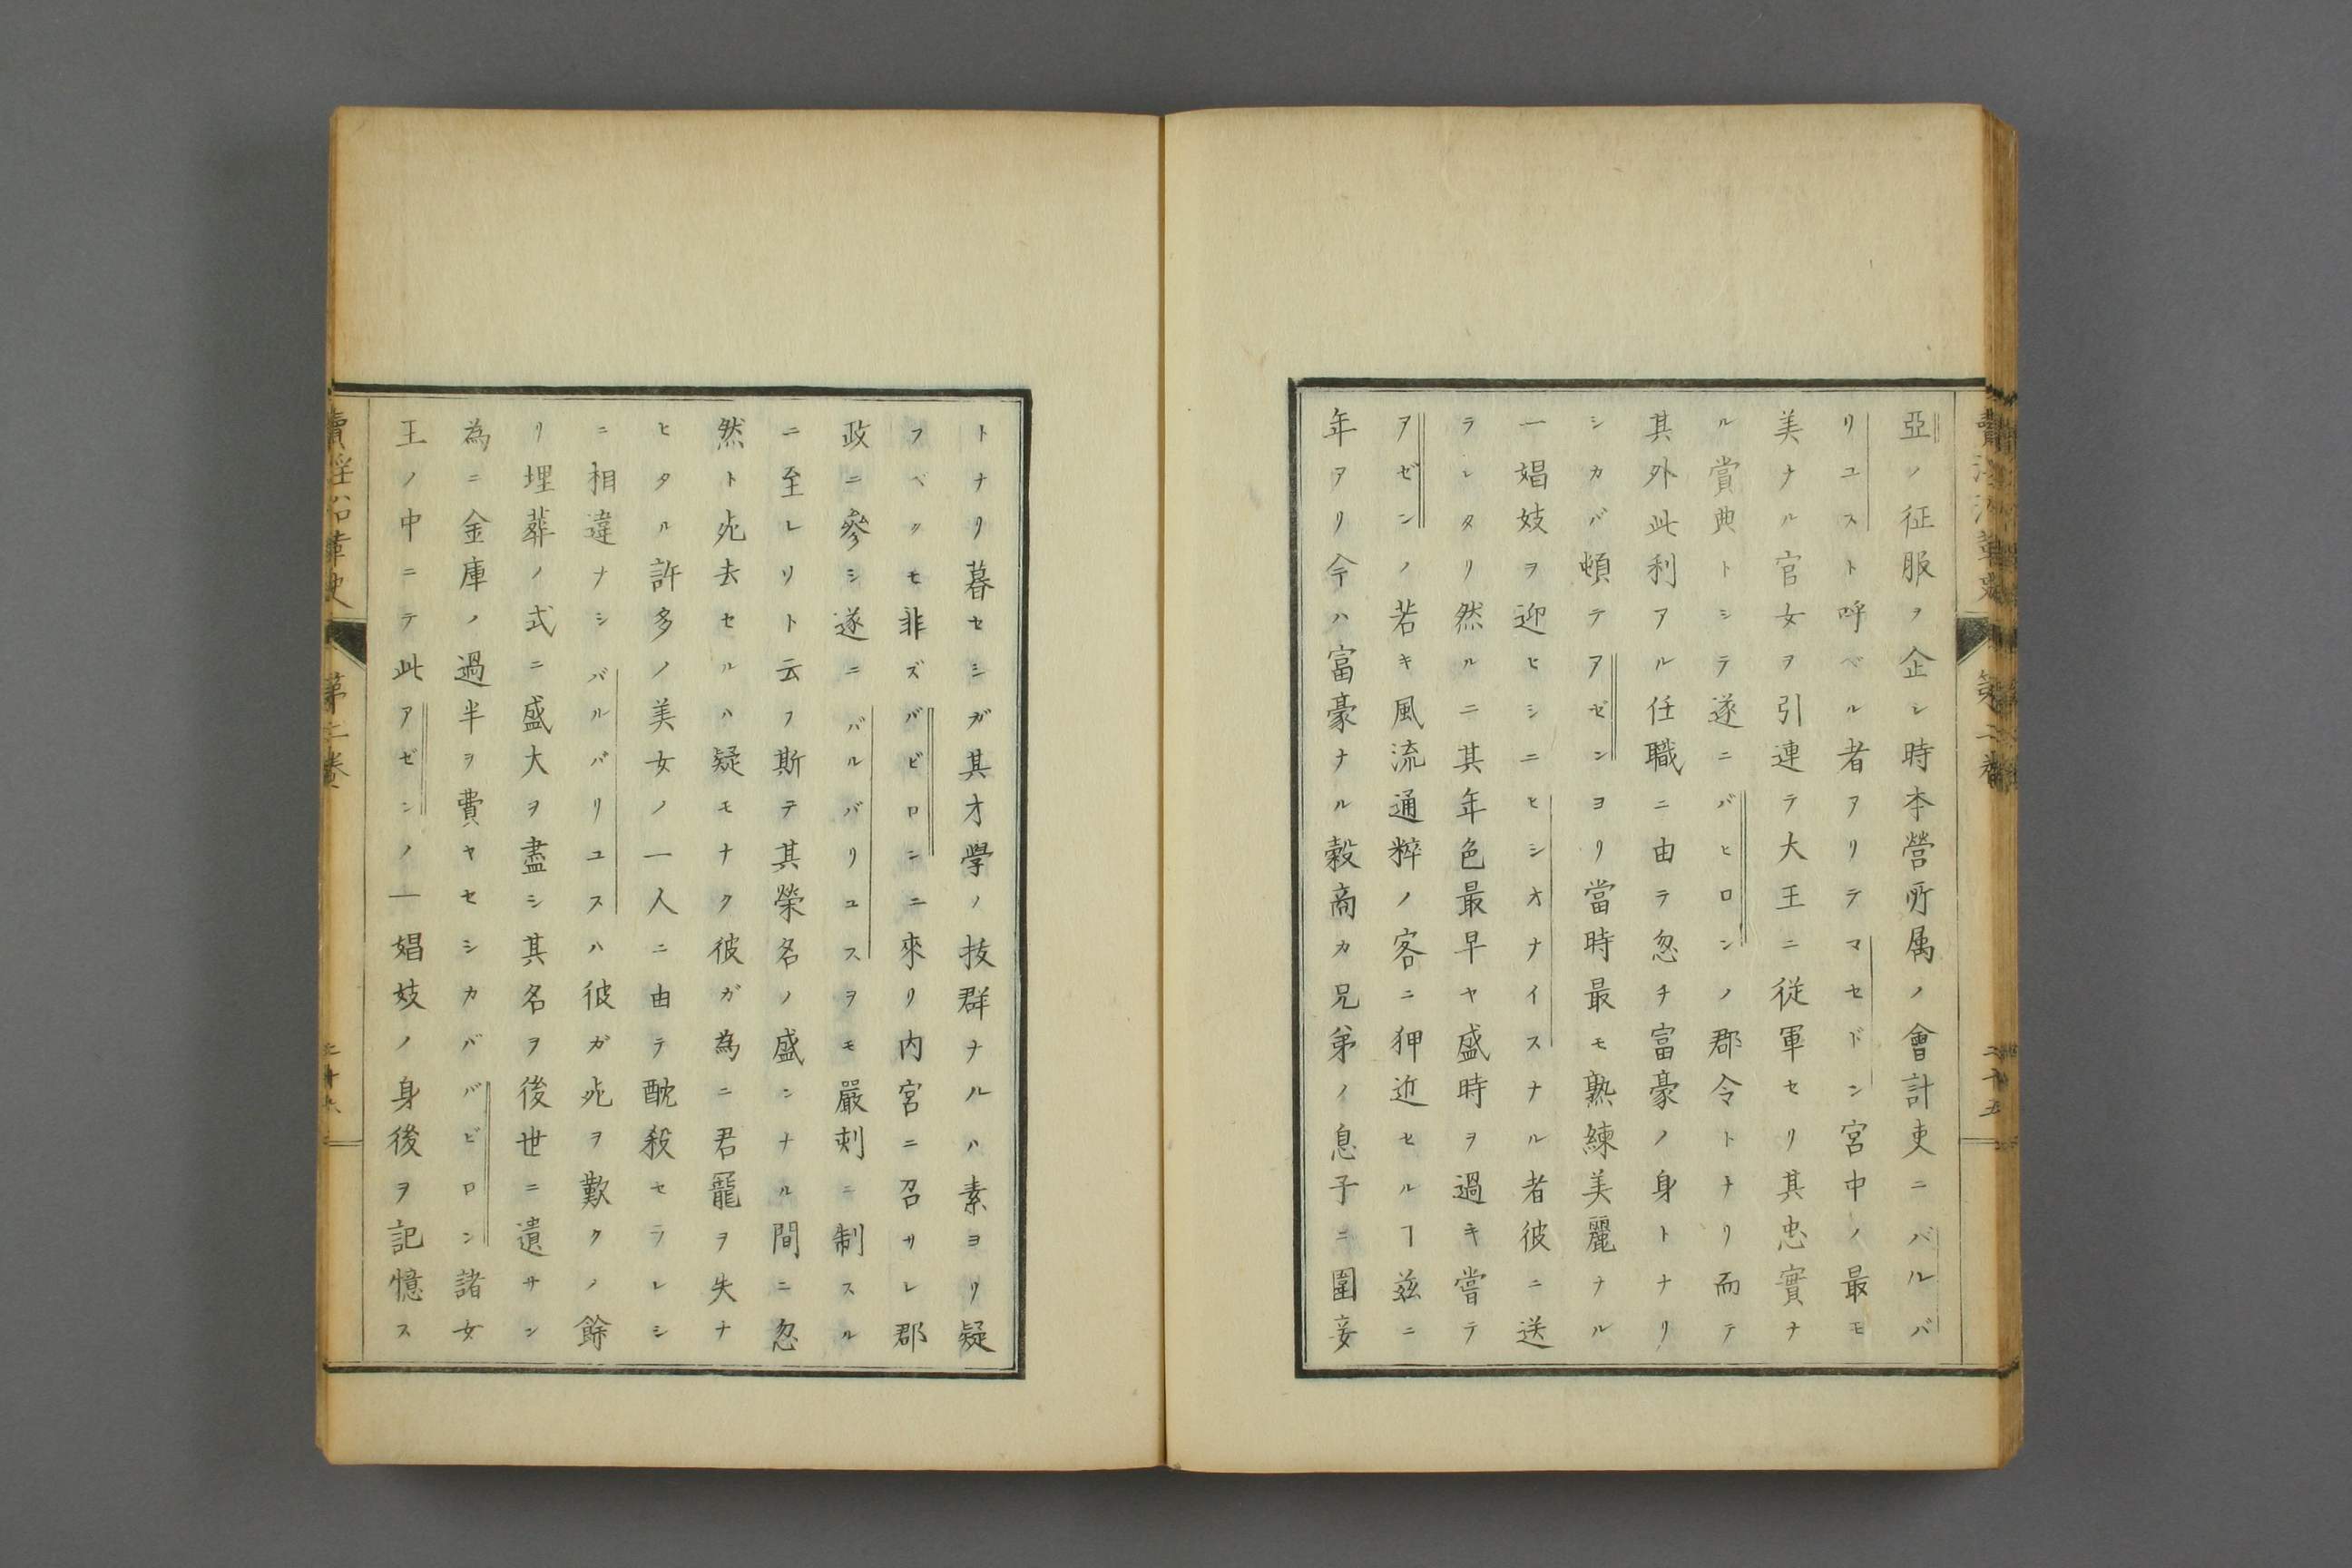 亞ノ征服ヲ企シ時本營所属ノ會計吏ニバルバ
リユスト呼ベル者アリテマセドン宮中ノ最モ
美ナル官女ヲ引連テ大王ニ従軍セリ其忠實ナ
ル賞典トシテ遂ニバヒロンノ郡令トナリ而テ
其外此利アル任職ニ由テ忽チ富豪ノ身トナリ
シカバ頓テアゼンヨリ當時最モ熟練美麗ナル
一娼妓ヲ迎ヒシニヒシオナイスナル者彼ニ送
ラレタリ然ルニ其年色最早ヤ盛時ヲ過キ嘗テ
アゼンノ若キ風流通粹ノ客ニ狎近セルヿ茲ニ
年アリ今ハ富豪ナル穀商カ兄弟ノ息子ニ圍妾
トナリ暮セシガ其才學ノ抜群ナルハ素ヨリ疑
フベクモ非ズバビロンニ來リ内宮ニ召サレ郡
政ニ參シ遂ニバルバリユスヲモ嚴刺ニ制スル
ニ至レリト云フ斯テ其榮名ノ盛ンナル間ニ忽
然ト死去セルハ疑モナク彼ガ為ニ君寵ヲ失ナ
ヒタル許多ノ美女ノ一人ニ由テ酖殺セラレシ
ニ相違ナシバルバリユスハ彼ガ死ヲ歎クノ餘
リ埋葬ノ式ニ盛大ヲ盡シ其名ヲ後世ニ遺サン
為ニ金庫ノ過半ヲ費ヤセシカババビロン諸女
王ノ中ニテ此アゼンノ一娼妓ノ身後ヲ記憶ス
第二巻